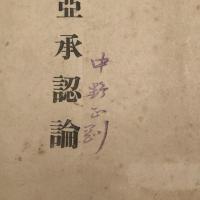 亞承認論
中野正剛